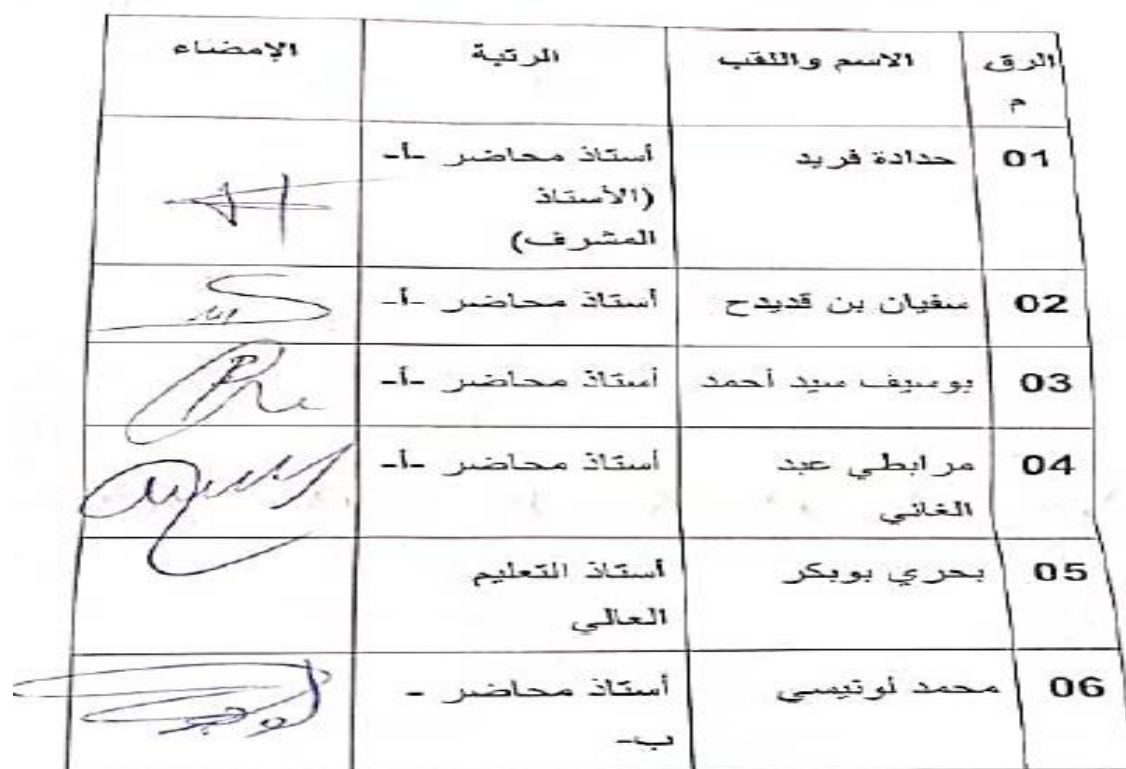 الرق الاسم واللقب الرتبة الإمضاء
م
01 حدادة فريد أستاذ محاضر -أ-
(الأستاذ
المشرف)
02 سفيان بن قديدح أستاذ محاضر -أ-
03 بوسيف سيد أحمد أستاذ محاضر -أ-
04 مرابطي عبد أستاذ محاضر -أ-
الغاني
05 بحري بوبكر أستاذ التعليم
العالي
06 محمد لونيسي أستاذ محاضر -
ب-